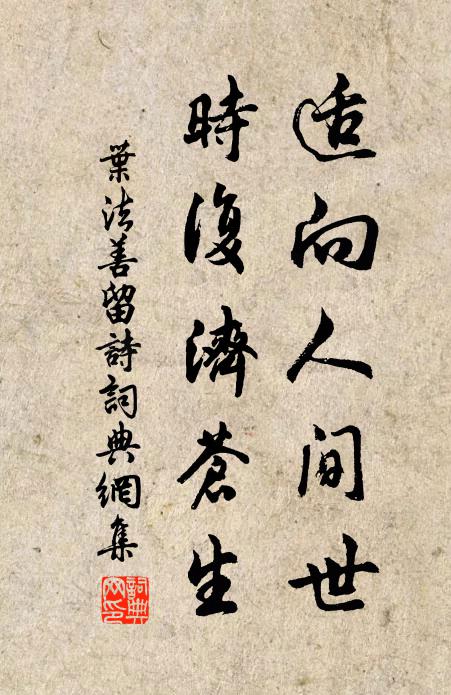 适向人间世
時復濟蒼生
葉法善留詩詞典網集
詞典網印